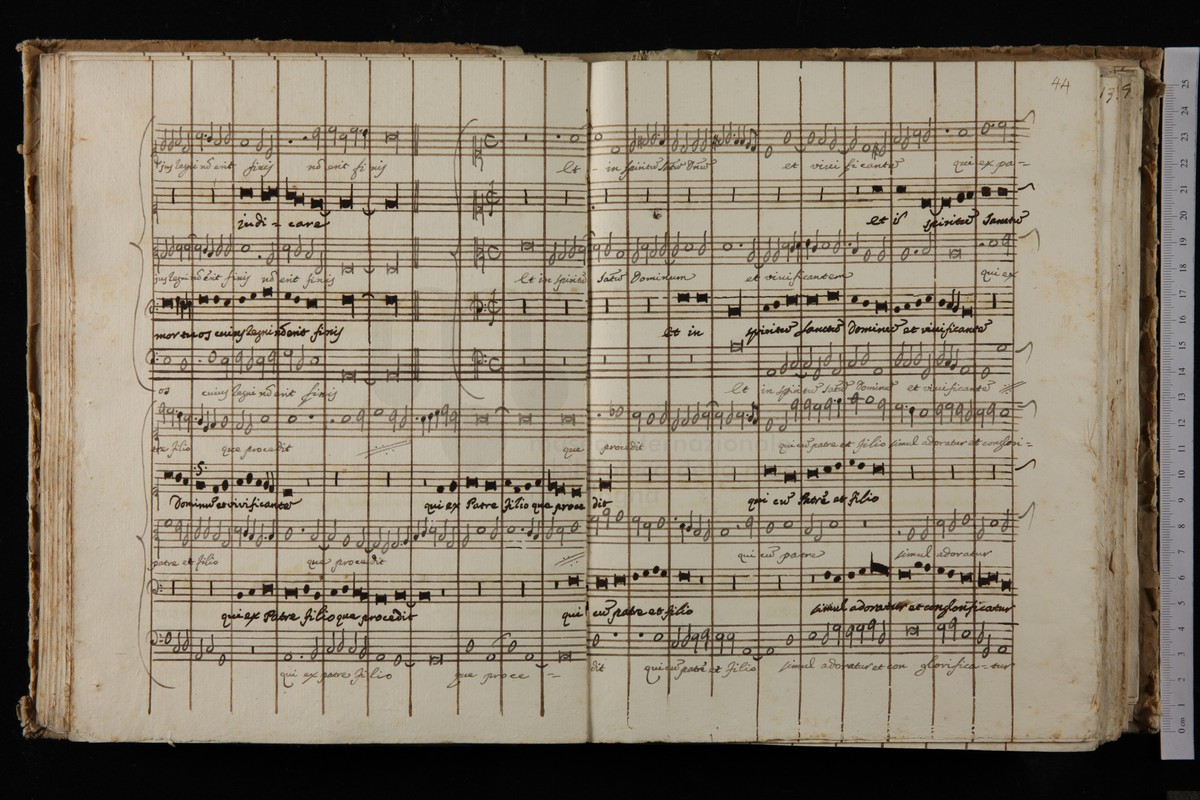 44
13.
9.
jus regni nō erit finis nō erit finis Et in spiritū sātū Dnū et vivificantē qui ex pa=
judi = care et ī spiritū Sanctū
jus regni nō erit finis nō erit finis Et in spiritū Sātū Dominum et vivificantem qui ex
mortuos cuius regni nō erit finis et in spiritū sanctū Dominū et vivificantē
os cuius regni nō erit finis Et in spiritū sātū Dominū et vivificantē
tre filio que procedit que procedit qui cū patre et filio simul adoratur et conglori=
Dominū et vivificantē qui ex Patre filio que proce dit qui cū Patre et filio
patre et filio que procedit qui cū patre simul adoratur
qui ex Patre filio que procedit qui cū patre et filio simul adoratur et conglorificatur
qui ex patre filio que proce = dit qui cū patre et filio simul adoratur et con glorifica=tur